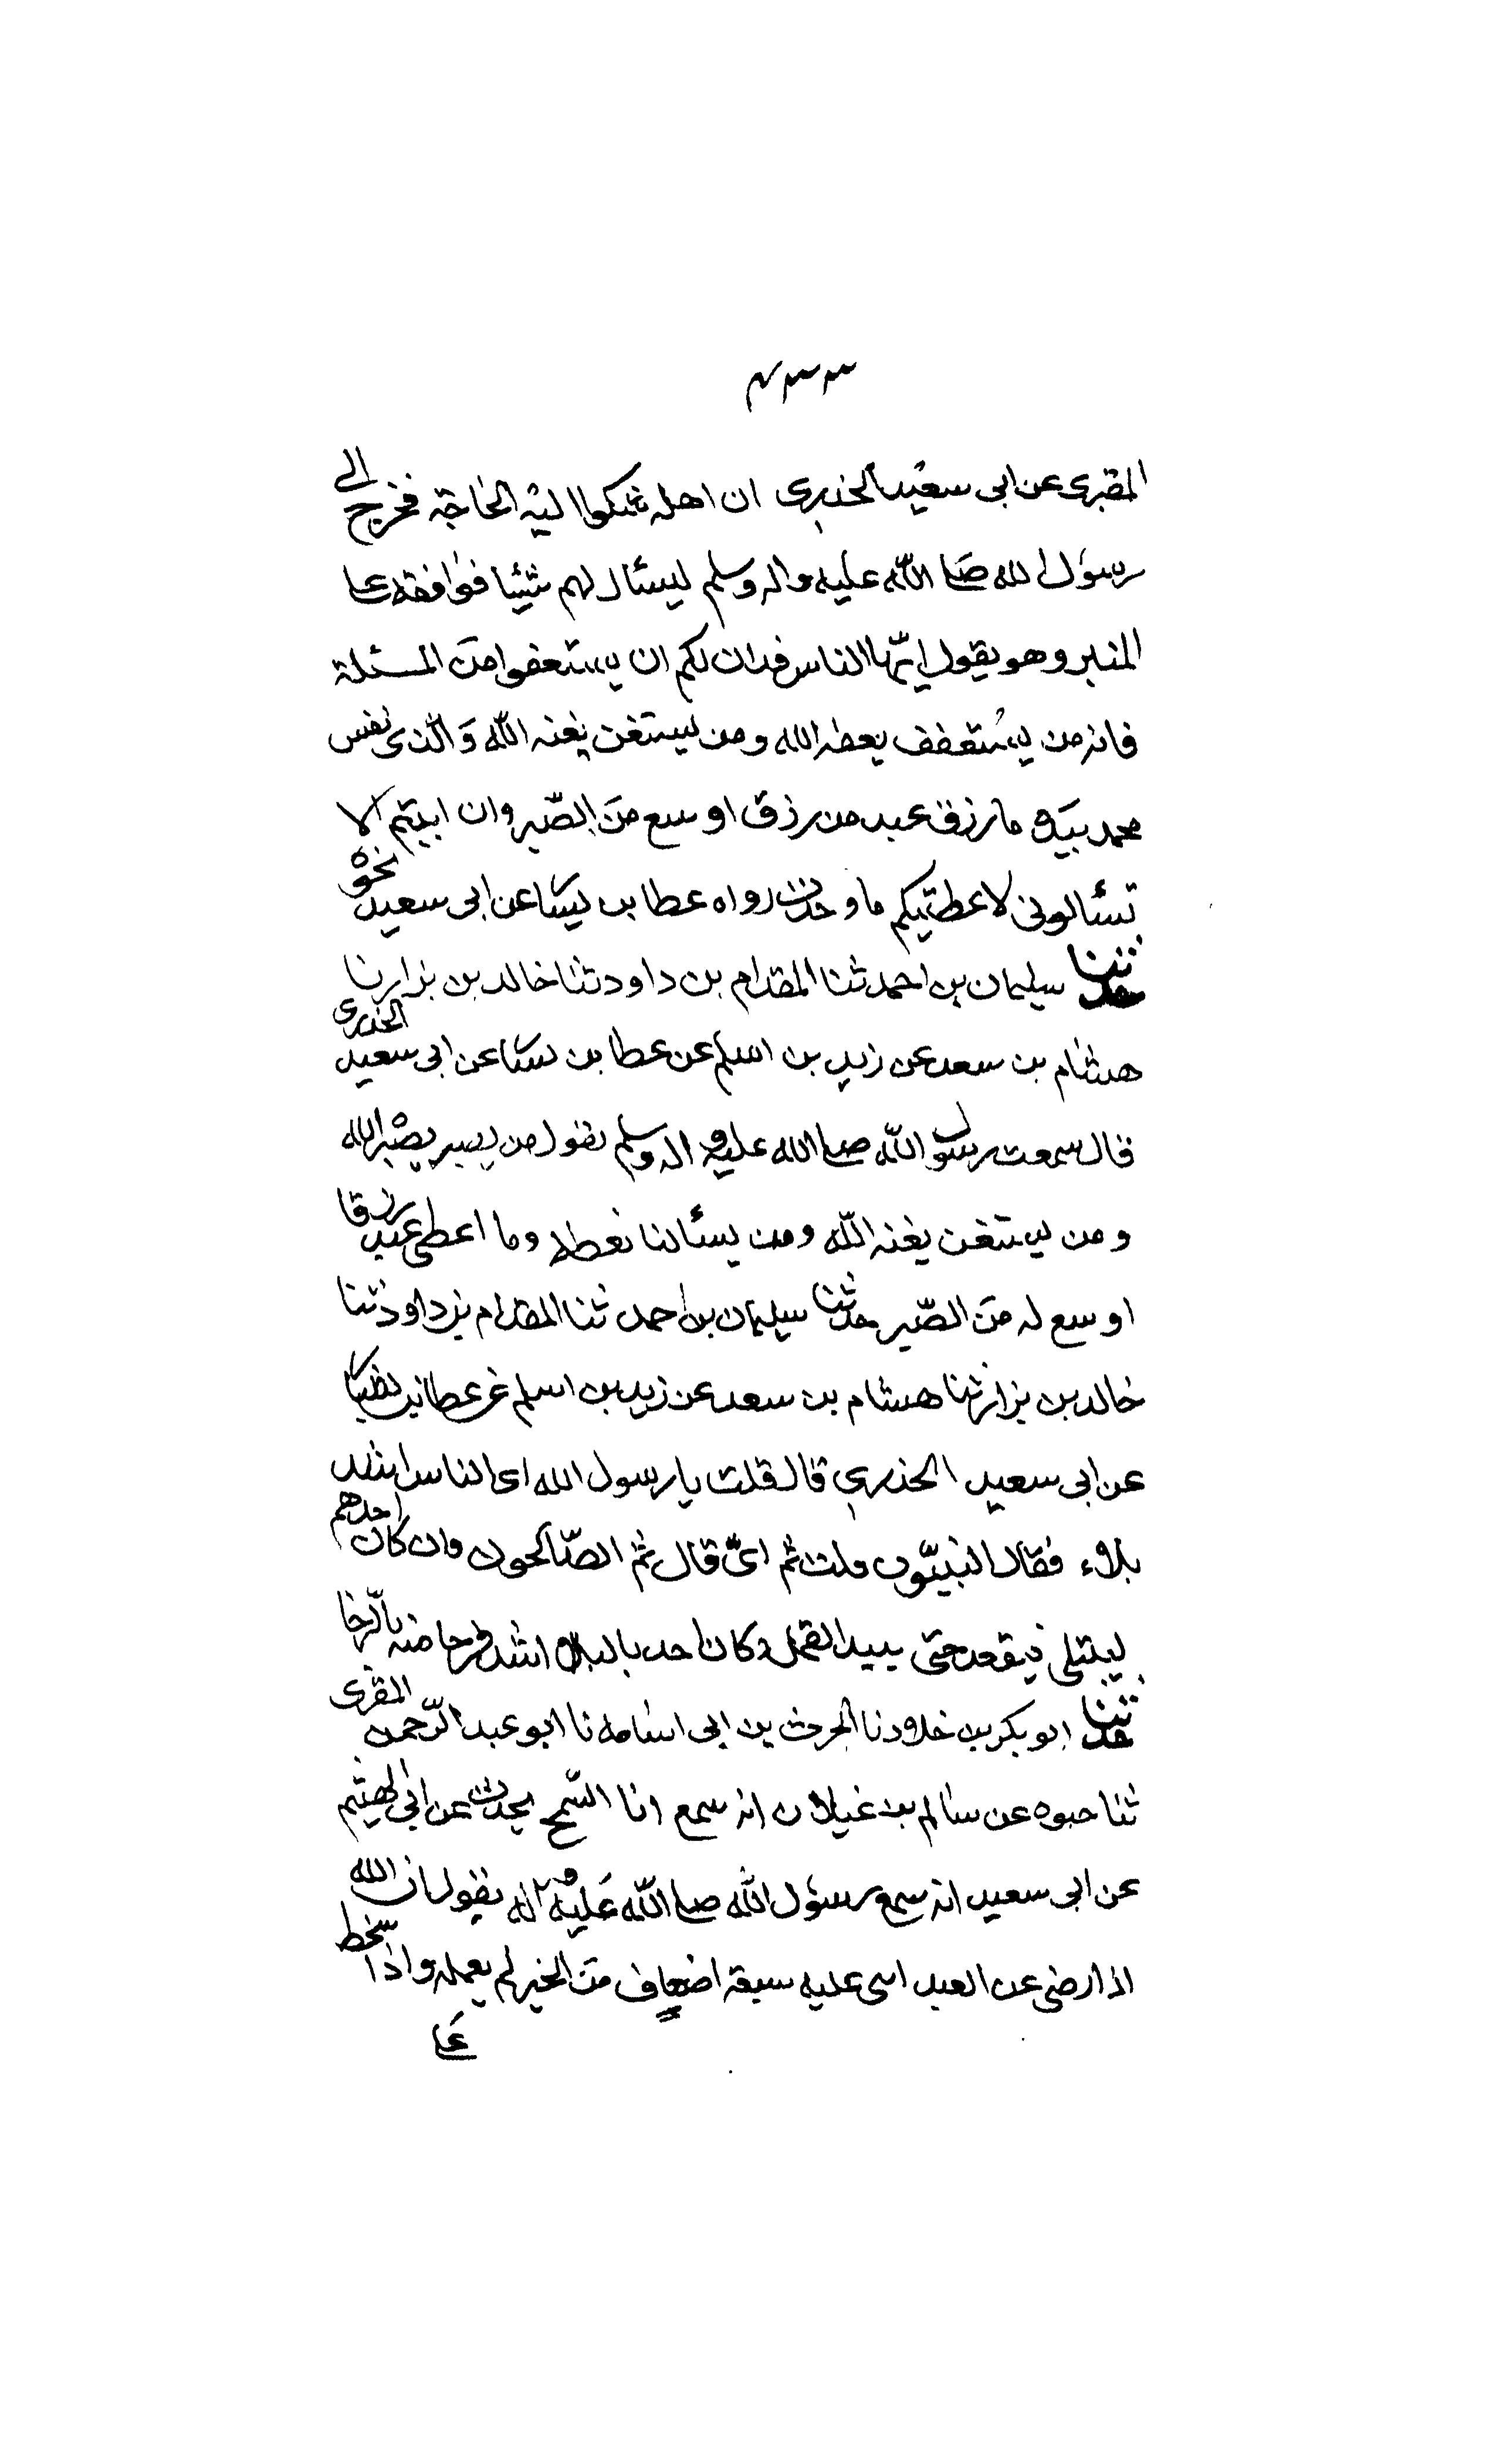 ۳۳۷
المقبرى عن ابى سعيد الخدرى ان اهله شكوا اليه الحاجة فخرج الى
رسول الله صلى الله عليه واله وسلم ليسئال لهم شيئا فوافقه على
المنبر وهو يقول ايّها الناس قد ان لكم ان يستعفوا من المسئلة
فانه من يستعفف يعفه الله ومن يستغن يغنه الله وَالّذى نفس
محمد بيده ما رزق عبد من رزق اوسع منَ الصّبر وان ابيتم الا
تسئالونى لاعطيتكم ما وجدت رواه عطا بن يسار عن ابى سعيد نحوه
حدثنا سليمان بن احمد ثنا المقدام بن داود ثنا خالد بن نزار نا
هشام بن سعد عن زيد بن اسلم عن عطا بن يسار عن ابى سعيد الخدرى
قال سمعت رسول الله صلى الله عليه واله وسلم يقول من يصبر يصْبره الله
ومن يستغن يغنه الله ومن يسئالنا نعطه وما اعطى عبد رزقا
اوسع له منَ الصّبر حدثنا سليمان بن احمد ثنا المقدام بن داود ثنا
خالد بن نزار ثنا هشام بن سعد عن زيد بن اسلم عن عطا بن يسار
عن ابى سعيد الخدرى قال قلت يا رسول الله اى الناس اشد
بلاء فقال النبيّون قلت ثم اىّ قال ثم الصّالحون وان كان احدهم
ليبتلى حتى القمل وكان احد بالبلاء اشد فرحا منه بالرّخا
حدثنا ابو بكر بن خلاد نا الحرث بن ابى اسامه نا ابو عبد الرّحمن المقرى
ثنا حيوه عن سالم بن غيلان انه سمع ابا السّمح يحدث عن ابى الهيثم
عن ابى سعيد انه سمع رسول الله صلى الله عَليْه واله يقول ان الله
اذا رضى عن العبد اثنى عليه سبعة اضعاف من الخير لم يعمله واذا سخط
عَلى